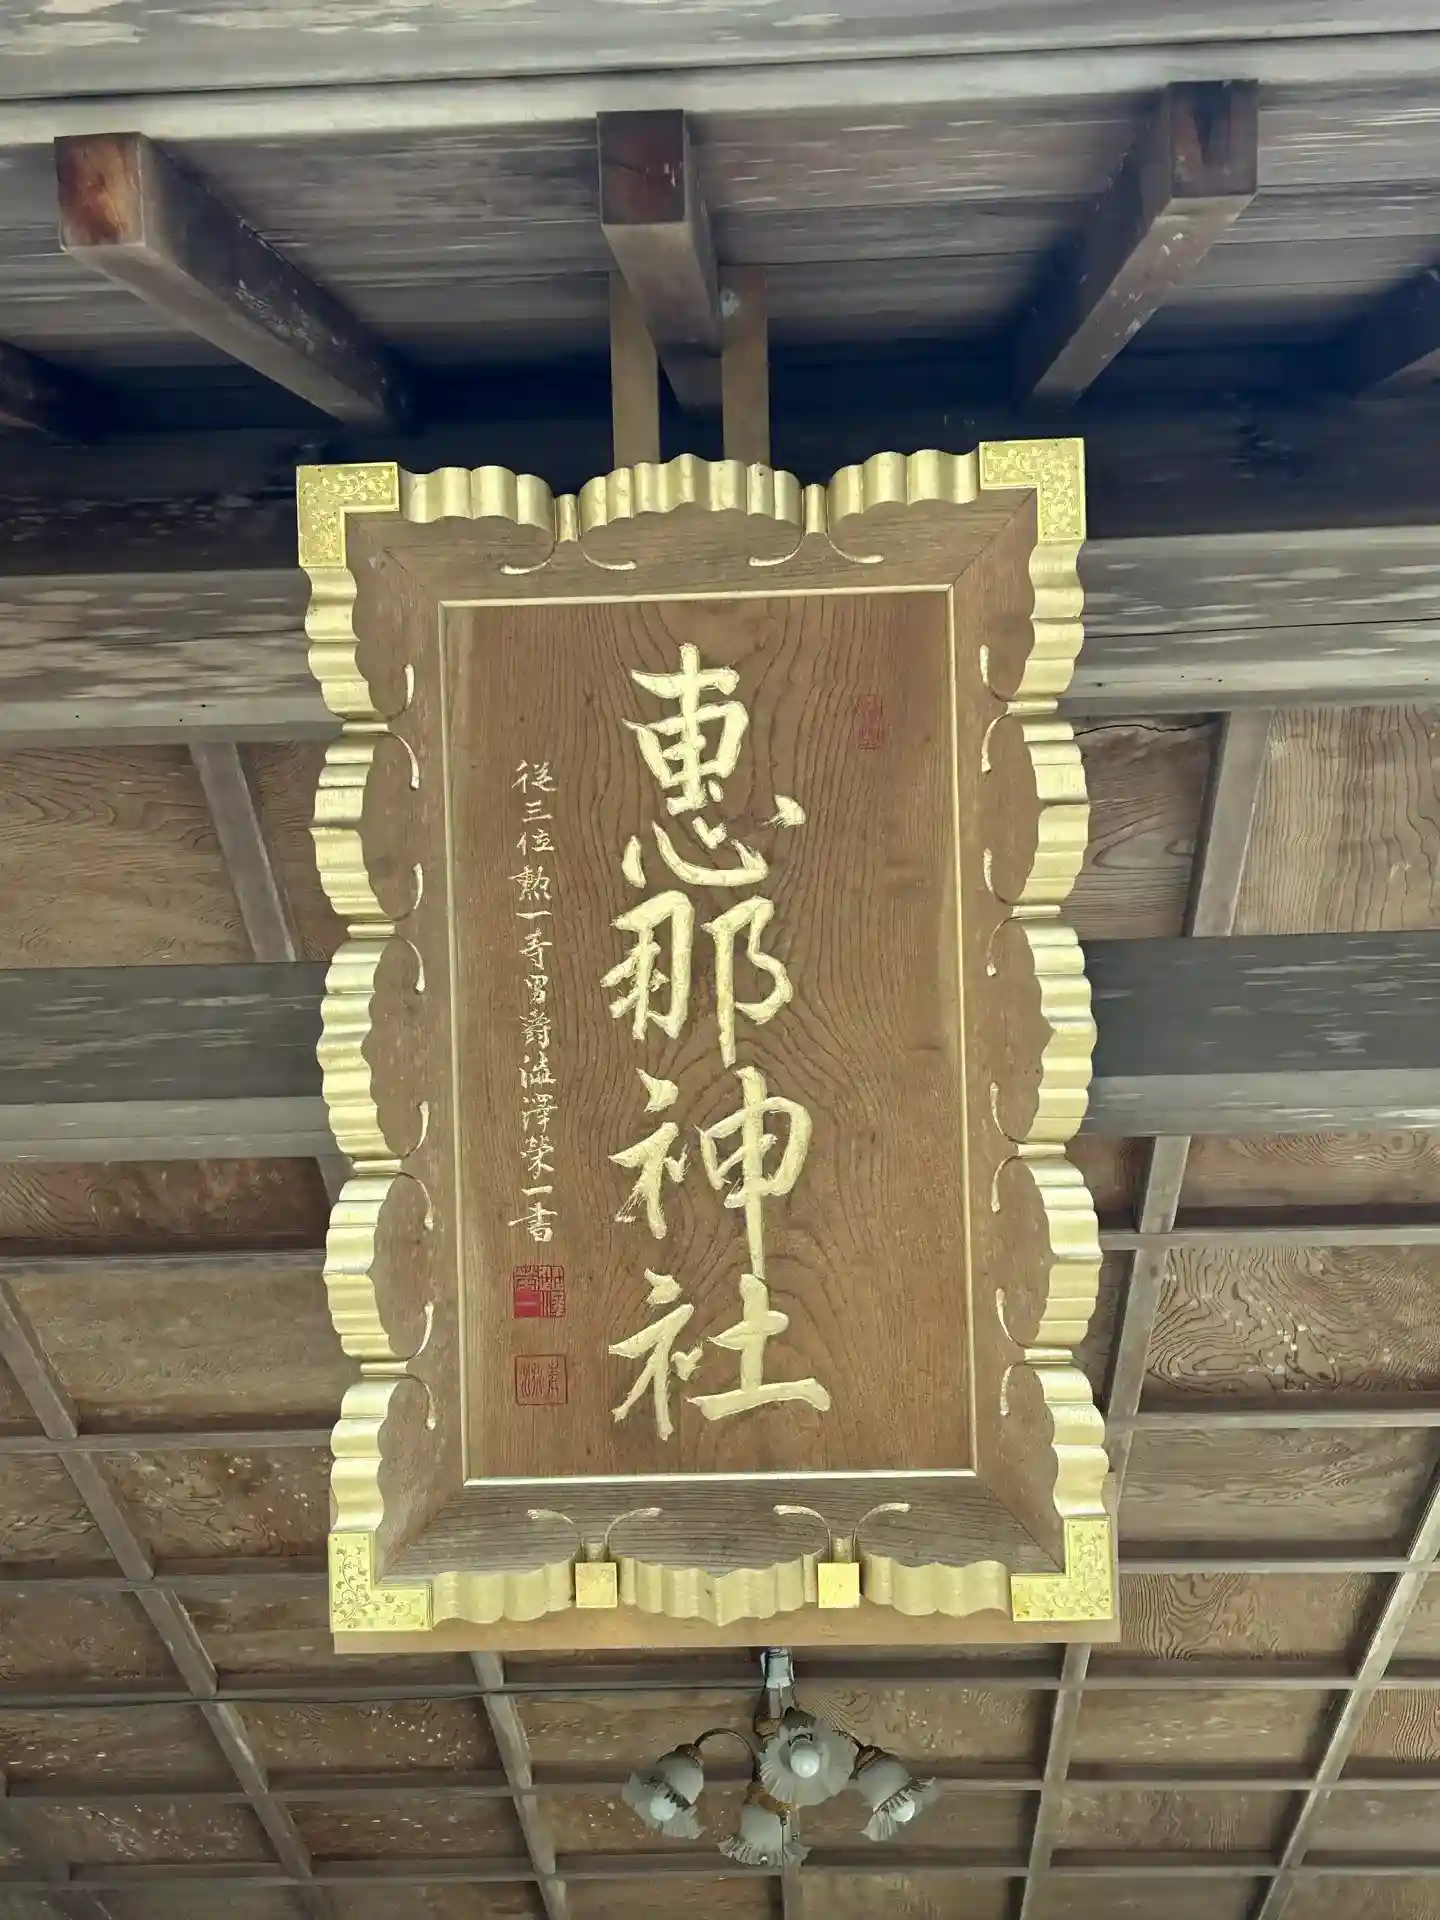 惠那神社
從三位勲一等男爵澁澤榮一書